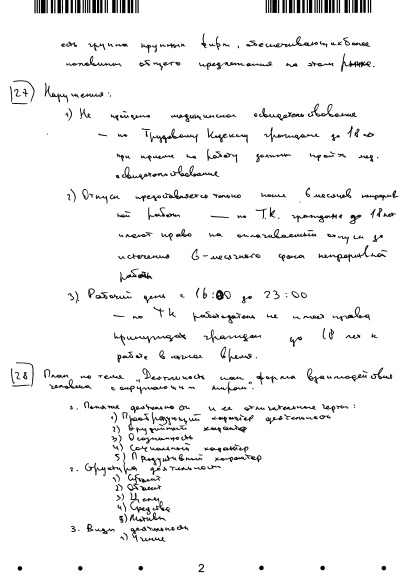 есть группа крупных фирм, обеспечивающих более
половины общего предложения на этом рынке.
27 Нарушения:
1) Не пройдено медицинское освидетельствование
— по Трудовому Кодексу граждане до 18 лет
при приеме на работу должны пройти мед.
освидетельствование
2) Отпуск предоставляется только после 6 месяцев непрерыв
ной работы — по Т.К. граждане до 18 лет
имеют право на оплачиваемый отпуск до
истечения 6-месячного срока непрерывной
работы
3) Рабочий день с 16:00 до 23:00
— по ТК работодатель не имеет права
принуждать граждан до 18 лет к
работе в ночное время.
28 План по теме „Деятельность как форма взаимодействия
человека с окружающим миром".
1. Понятие деятельности и ее отличительные черты:
1) Преобразующий характер деятельности
2) Орудийный характер
3) Осознанность
4) Социальный характер
5) Продуктивный характер
2. Структура деятельности
1) Субъект
2) Объект
3) Цели
4) Средства
5) Мотивы
3. Виды деятельности
1) Учение
2